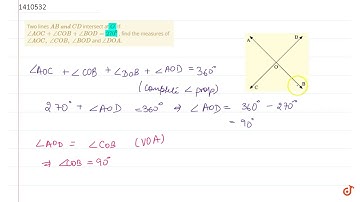 1410532
Two lines AB and CD intersect at O. If
∠AOC + ∠COB + ∠BOD = 270°, find the measures of
∠AOC, ∠COB, ∠BOD and ∠DOA.
A D
O
C B
∠AOC + ∠COB + ∠DOB + ∠AOD = 360°
(complete ∠ prop)
270° + ∠AOD = 360° ⇒ ∠AOD = 360° - 270°
= 90°
∠AOD = ∠COB (VOA)
⇒ ∠COB = 90°